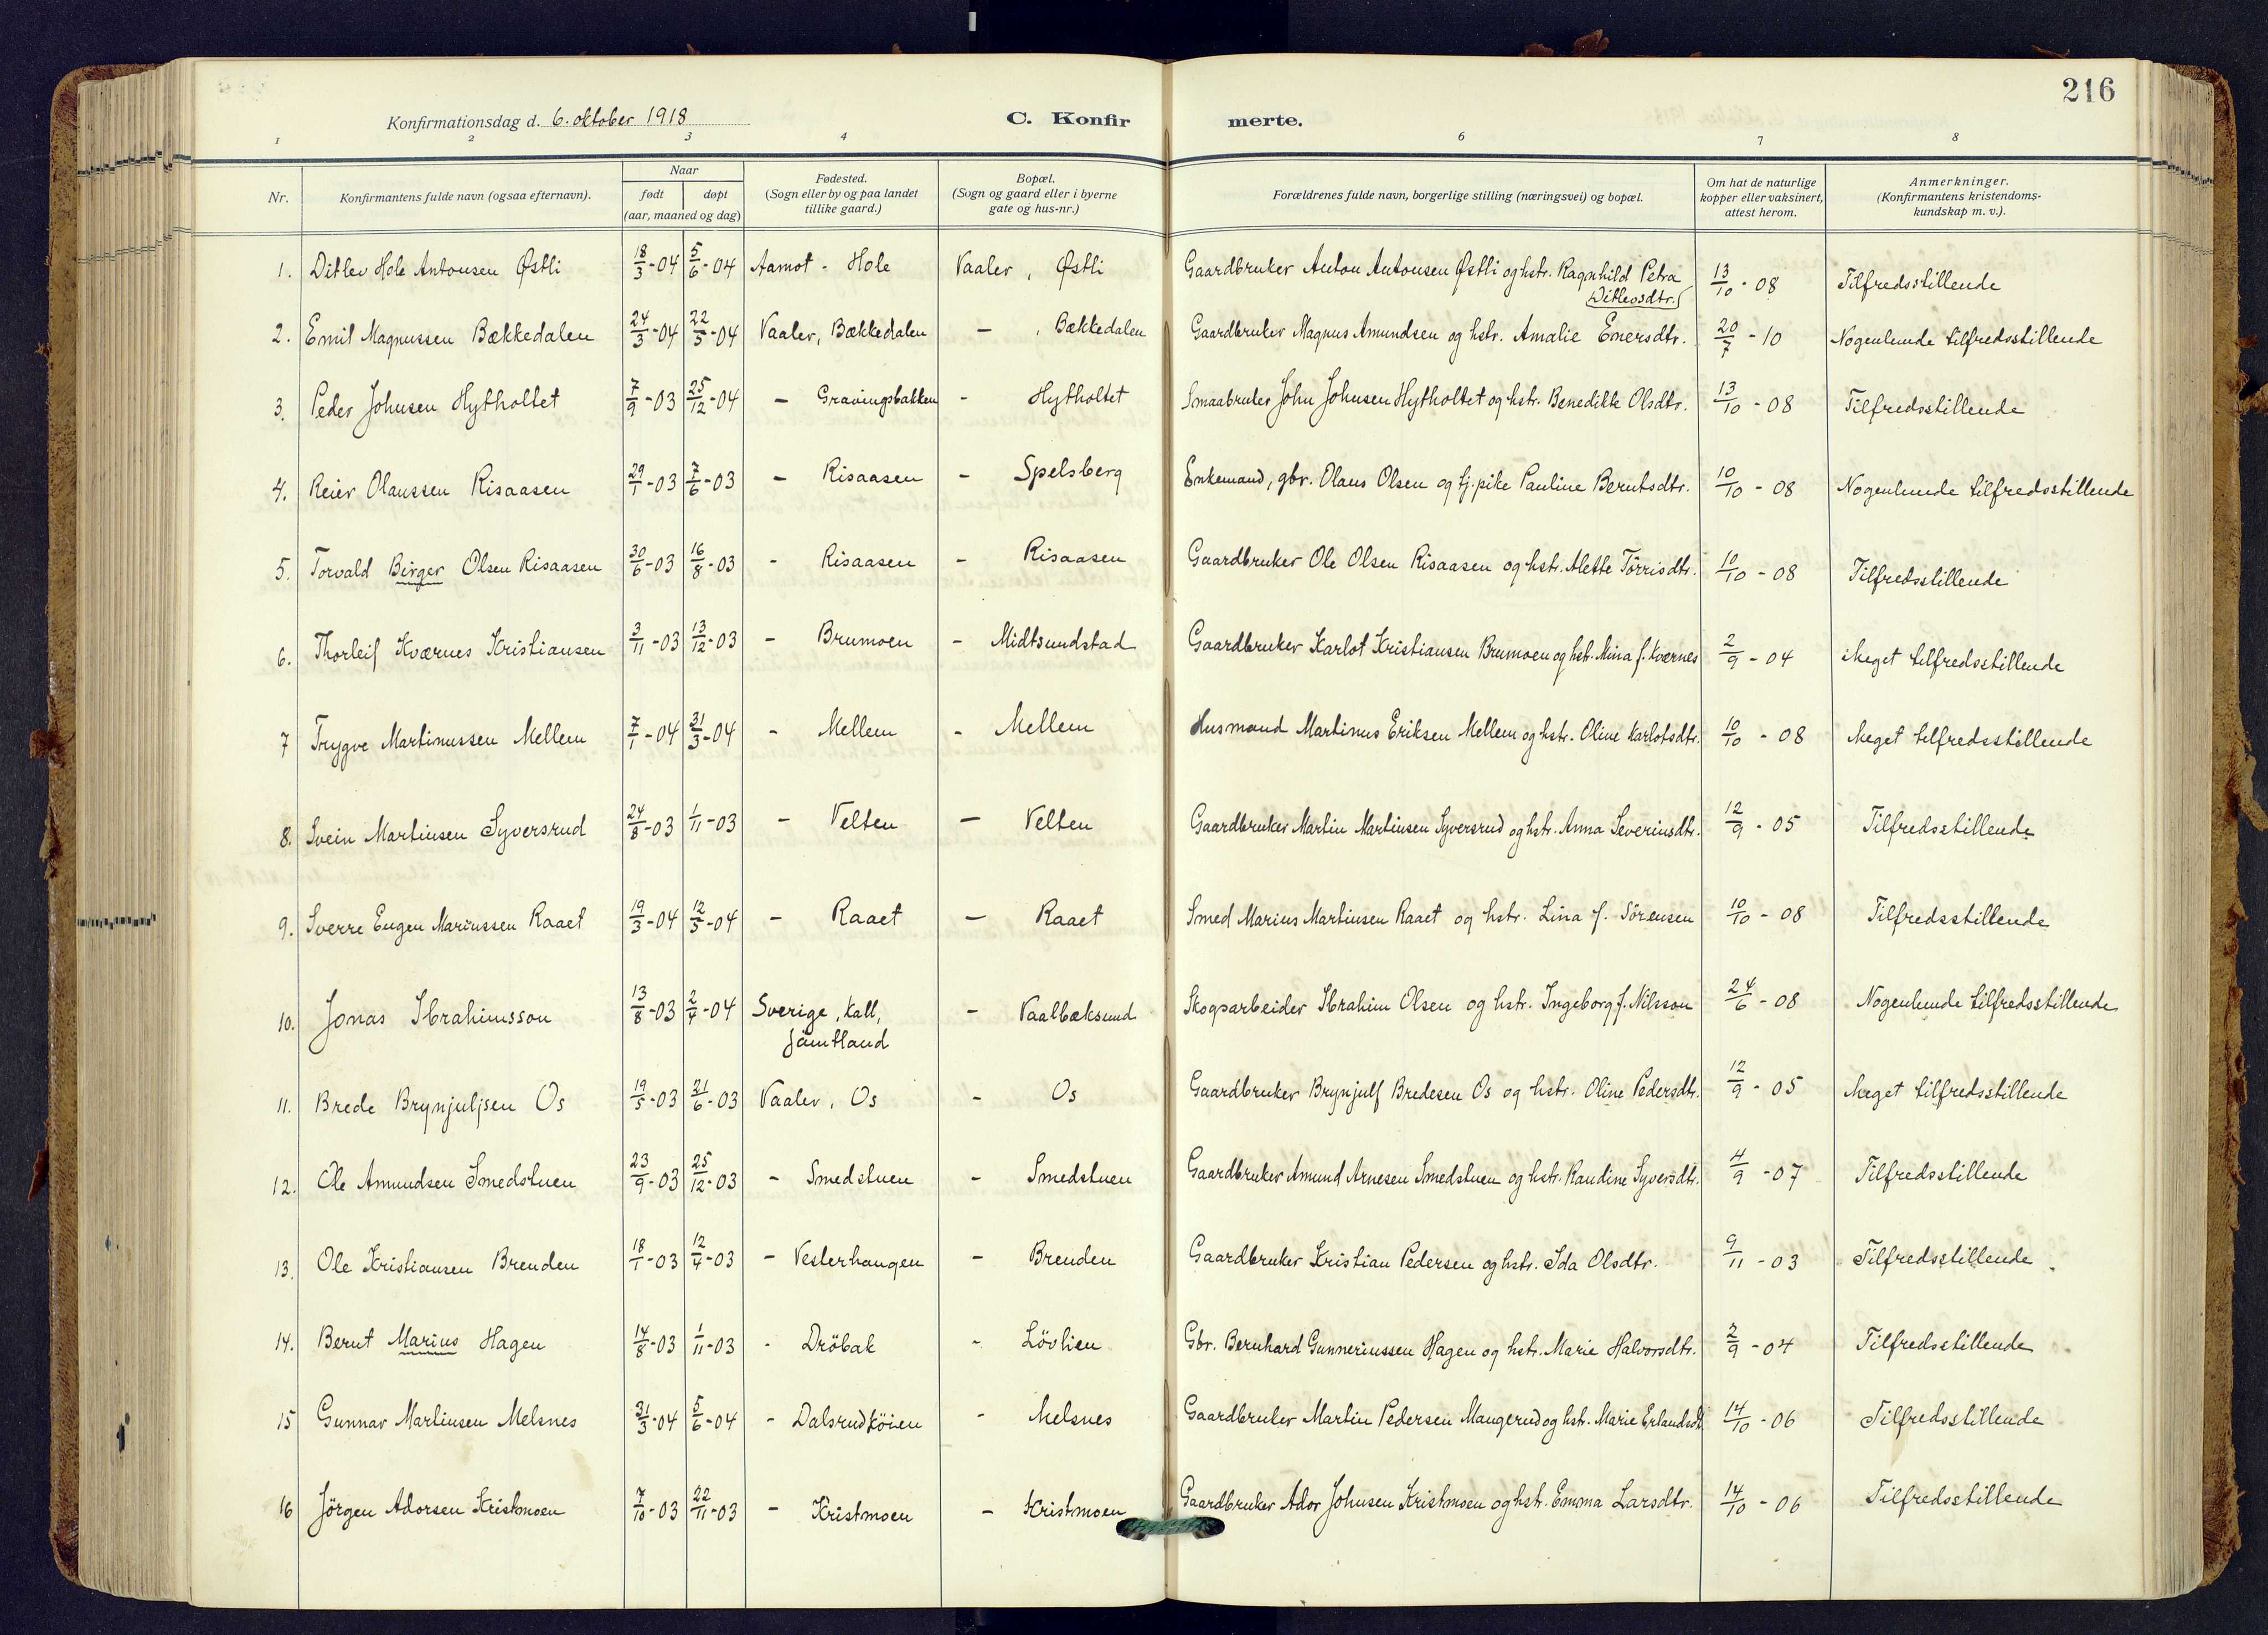 216
Konfirmationsdag d. 6. oktober 1918 C. Konfirmerte.
1 2 3 4 6 7 8
Nr. Konfirmantens fulde navn (ogsaa efternavn). Naar født døpt (aar, maaned og dag) Fødested. (Sogn eller by og paa landet tillike gaard.) Bopæl. (Sogn og gaard eller i byerne gate og hus-nr.) Forældrenes fulde navn, borgerlige stilling (næringsvei) og bopæl. Om hat de naturlige kopper eller vaksinert, attest herom. Anmerkninger. (Konfirmantens kristendoms-kundskap m. v.).
1. Ditlev Hole Antonsen Østli 18/3-04 5/6-04 Aamot - Hole Vaaler, Østli Gaardbruker Anton Antonsen Østli og hstr. Ragnhild Petra Ditlevsdtr. 13/10-08 Tilfredsstillende
2. Emil Magnussen Bækkedalen 24/3-04 22/5-04 Vaaler, Bækkedalen - , Bækkedalen Gaardbruker Magnus Amundsen og hstr. Amalie Enersdtr. 20/7-10 Nogenlunde tilfredsstillende
3. Peder Johnsen Hytholtet 7/9-03 25/12-04 - Gravingsbakken - Hytholtet Smaabruker John Johnsen Hytholtet og hstr. Benedikte Olsdtr. 13/10-08 Tilfredsstillende
4. Reier Olaussen Risaasen 29/1-03 7/6-03 - Risaasen - Spelsberg Enkemand, gbr. Olaus Olsen og tj.pike Pauline Berntsdtr. 10/10-08 Nogenlunde tilfredsstillende
5. Torvald Birger Olsen Risaasen 30/6-03 16/8-03 - Risaasen - Risaasen Gaardbruker Ole Olsen Risaasen og hstr. Alette Törrisdtr. 10/10-08 Tilfredsstillende
6. Thorleif Kværnes Kristiansen 3/11-03 13/12-03 - Brumoen - Midtsundstad Gaardbruker Karlot Kristiansen Brumoen og hstr. Mina f. Kværnes 2/9-04 Meget tilfredsstillende
7 Trygve Martinussen Mellem 7/1-04 31/3-04 - Mellem - Mellem Husmand Martinus Eriksen Mellem og hstr. Oline Karlotsdtr. 10/10-08 Meget tilfredsstillende
8. Svein Martinsen Syversrud 24/8-03 1/11-03 - Velten - Velten Gaardbruker Martin Martinsen Syversrud og hstr. Anna Severinsdtr. 12/9-05 Tilfredsstillende
9. Sverre Eugen Mariussen Raaet 19/3-04 12/5-04 - Raaet - Raaet Smed Marius Martinsen Raaet og hstr. Lina f. Sörensen 10/10-08 Tilfredsstillende
10. Jonas Ibrahimsson 13/8-03 2/4-04 Sverige, Kall, Jämtland - Vaalbæksund Skogsarbeider Ibrahim Olsen og hstr. Ingeborg f. Nilsson 24/6-08 Nogenlunde tilfredsstillende
11. Brede Brynjulfsen Os 19/5-03 21/6-03 Vaaler, Os - Os Gaardbruker Brynjulf Bredesen Os og hstr. Oline Pedersdtr. 12/9-05 Meget tilfredsstillende
12. Ole Amundsen Smedstuen 23/9-03 25/12-03 - Smedstuen - Smedstuen Gaardbruker Amund Arnesen Smedstuen og hstr. Randine Syversdtr. 4/9-07 Tilfredsstillende
13. Ole Kristiansen Brenden 18/1-03 12/4-03 - Vesterhaugen - Brenden Gaardbruker Kristian Pedersen og hstr. Ida Olsdtr. 9/11-03 Tilfredsstillende
14. Bernt Marius Hagen 14/8-03 1/11-03 - Dröbak - Lövlien Gbr. Bernhard Gunneriussen Hagen og hstr. Marie Halvorsdtr. 2/9-04 Tilfredsstillende
15 Gunnar Martinsen Melsnes 31/3-04 5/6-04 - Dalsrudköien - Melsnes Gaardbruker Martin Pedersen Mangerud og hstr. Marie Erlandsdt. 14/10-06 Tilfredsstillende
16 Jörgen Adorsen Kristmoen 7/10-03 22/11-03 - Kristmoen - Kristmoen Gaardbruker Ador Johnsen Kristmoen og hstr. Emma Larsdtr. 14/10-06 Tilfredsstillende